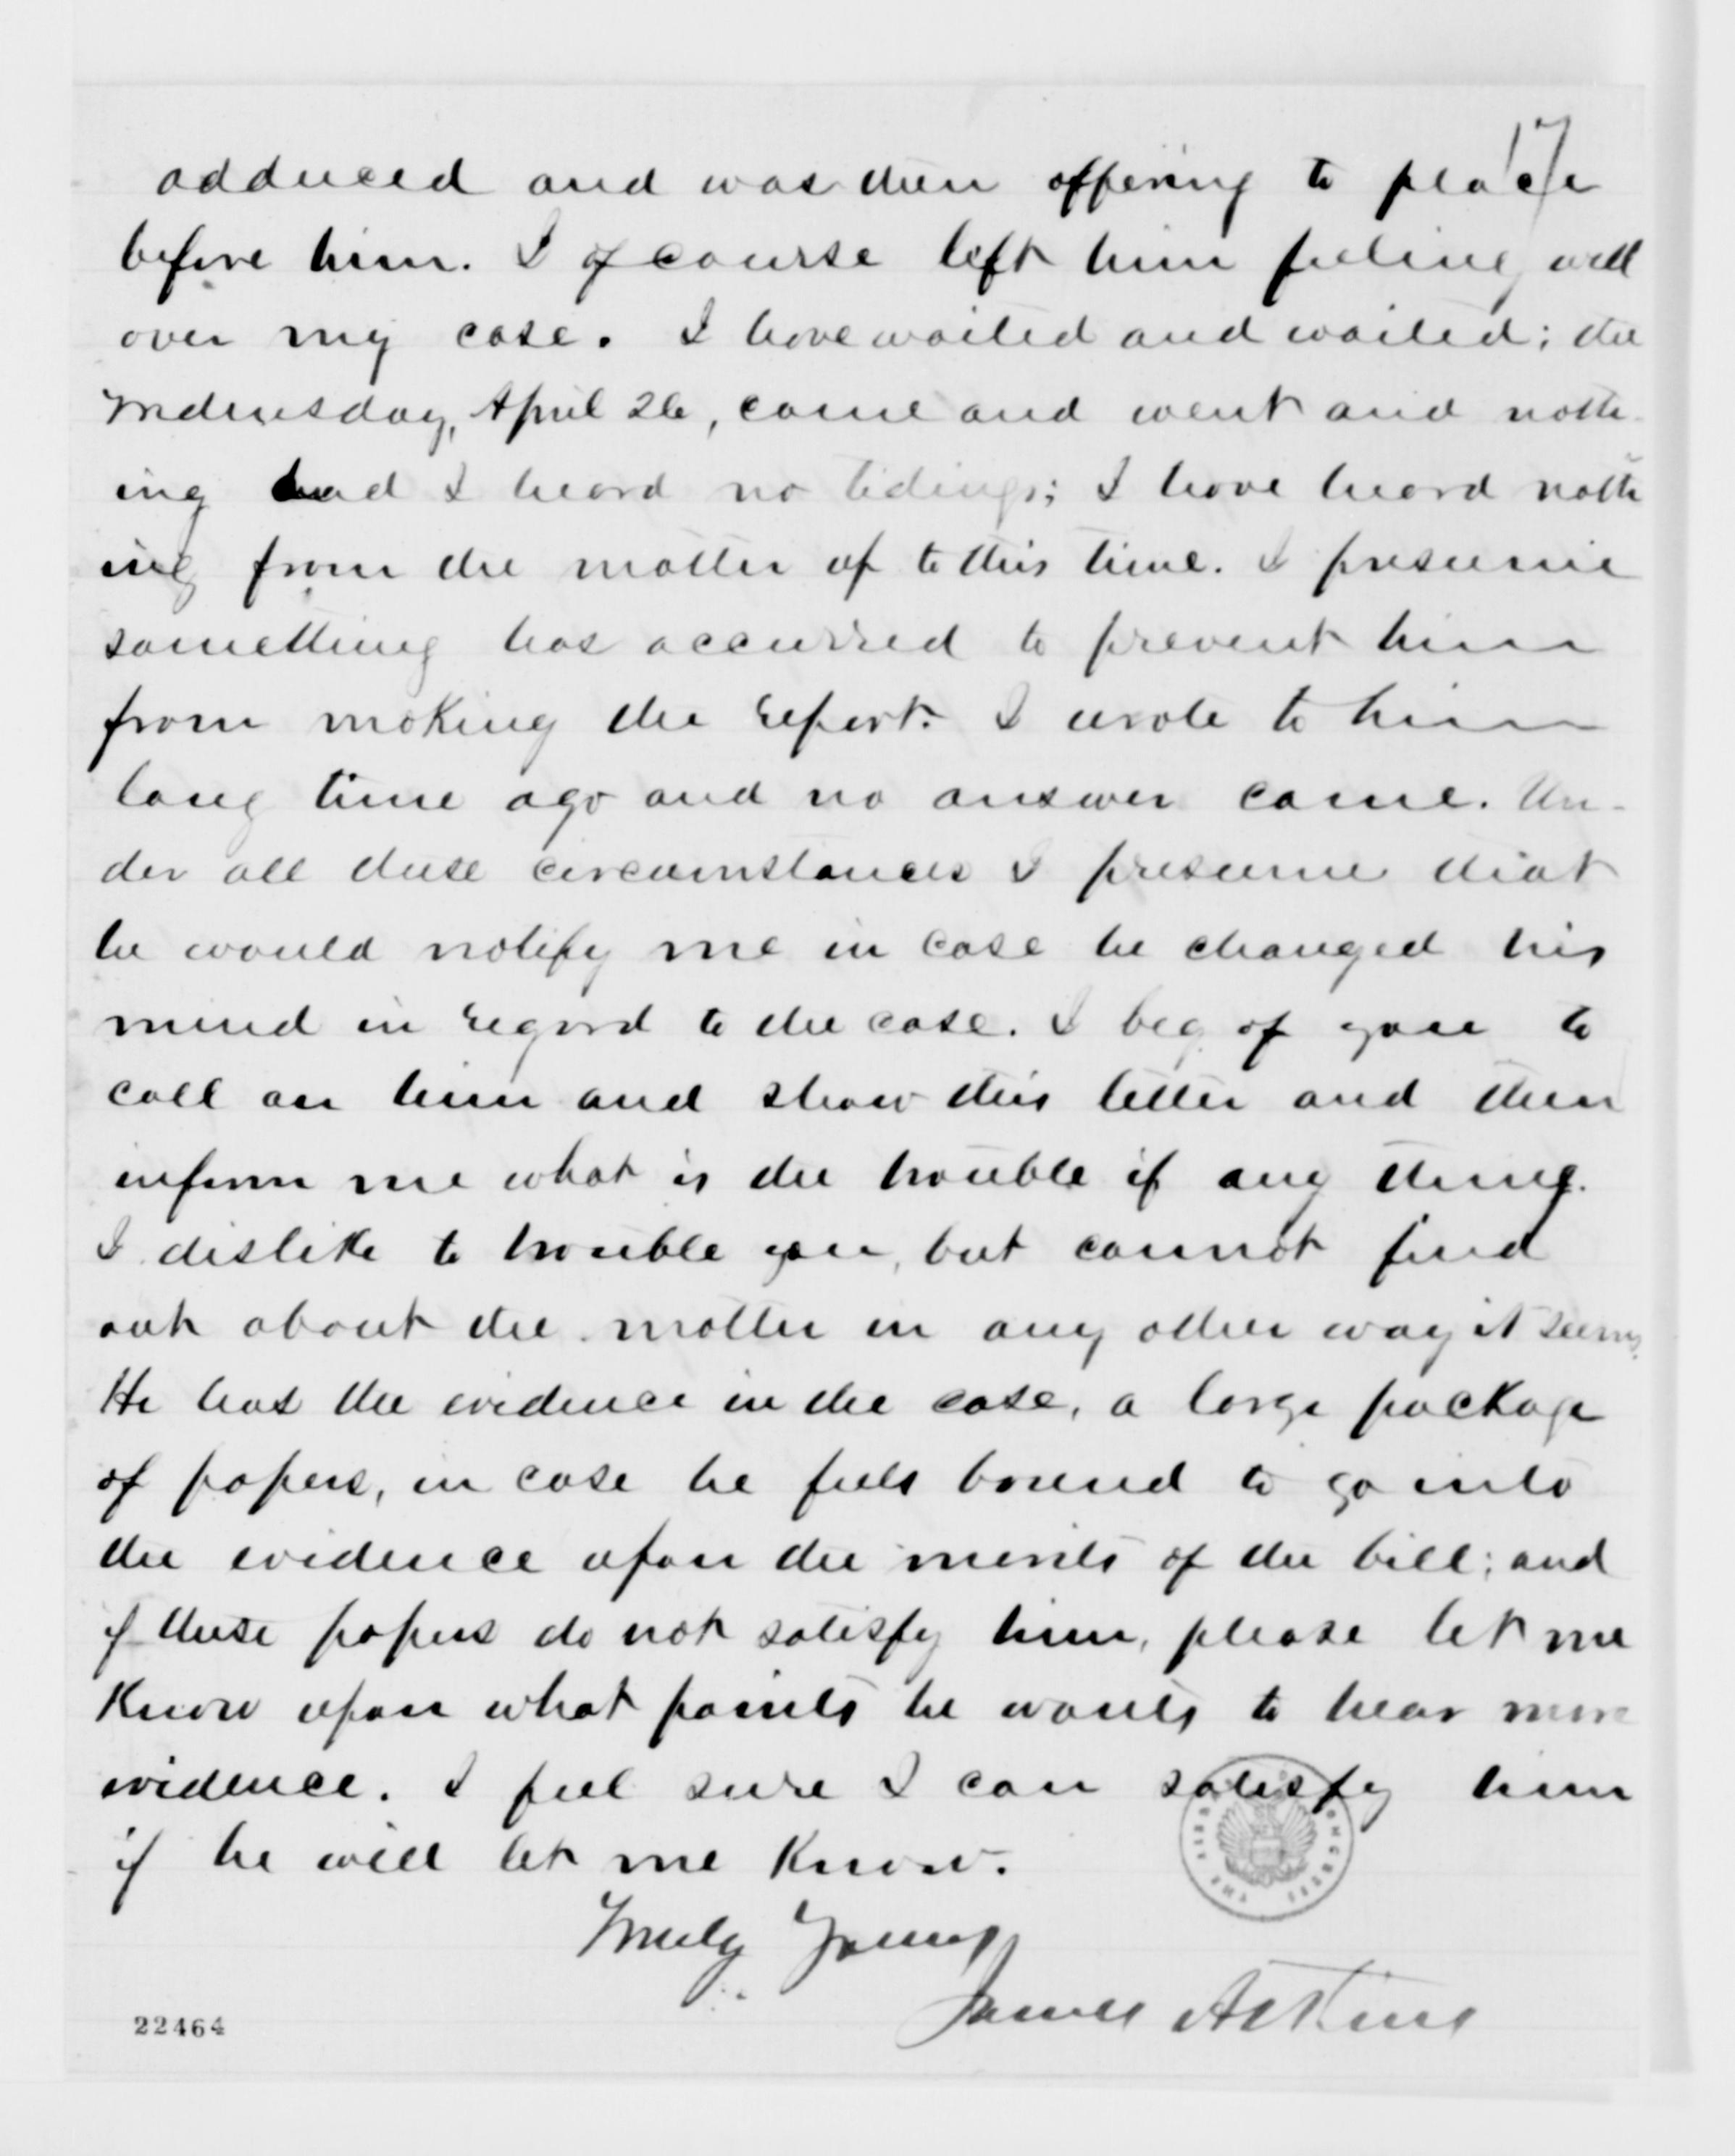 17
adduced and was then offering to place
before him. I of course left him feeling well
over my case. I have waited and waited; the
Wednesday, April 26, came and went and noth-
ing had I heard no tidings; I have heard noth
ing from the matter up to this time. I presume
something has occurred to prevent him
from making the report. I wrote to him
long time ago and no answer came. Un-
der all these circumstances I presume that
he would notify me in case he changed his
mind in regard to the case. I beg of you to
call on him and show this letter and then
inform me what is the trouble if any thing.
I dislike to trouble you, but cannot find
out about the matter in any other way it seems.
He has the evidence in the case, a large package
of papers, in case he feels bound to go into
the evidence upon the merits of the bill; and
if these papers do not satisfy him, please let me
Know upon what points he wants to hear more
evidence. I feel sure I can satisfy him
if he will let me Know.
Truly Yours
James Atkins
22464